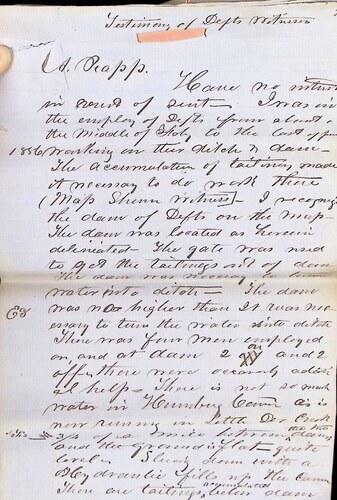 Testimony of Defts Witness
A. Rapp.
Have no interest
in result of suit. I was in
the employ of Defts from about
the middle of Feby to the last of
1886 working on their ditch & dam -
The accumulation of tailings made
it necessary to do work there
(Map Shown Witness) - I recognize
the dam of Defts on the map -
The dam was located as therein
delineated - The gate was used
to get the tailings out of dam
The dam was
water into ditch - The dam
was no higher than it was nec-
essary to turn the water into ditch
There was four men employed
on, and at dam 2 on and 2
off, there were occasionly
al help - There is not so much
water in Humbug Canon as is
now running in Little Creek
3/4 of a mile
and the ground is flat - quite
level -
Hydraulic fills up the Canon
There are tailings accumulated below dam